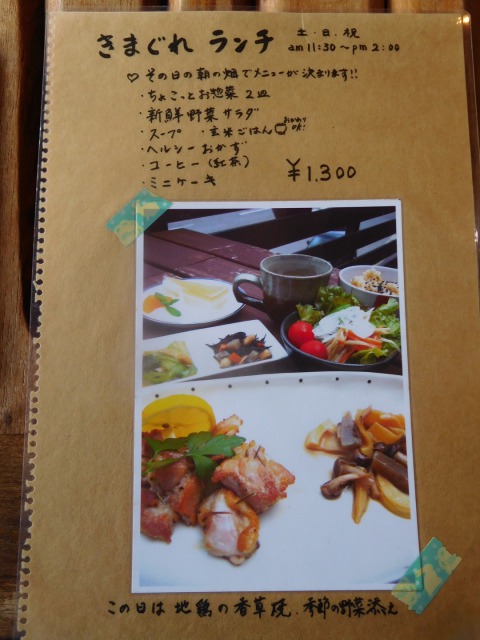 きまぐれ ランチ
土・日・祝
am 11:30～pm 2:00
♡その日の朝の畑でメニューが決まります!!
・ちょこっとお惣菜 2皿
・新鮮野菜サラダ
・スープ ・玄米ごはん おかわりOK!
・ヘルシーおかず
・コーヒー(紅茶)
・ミニケーキ
¥1,300
この日は 地鶏の香草焼、季節の野菜添え